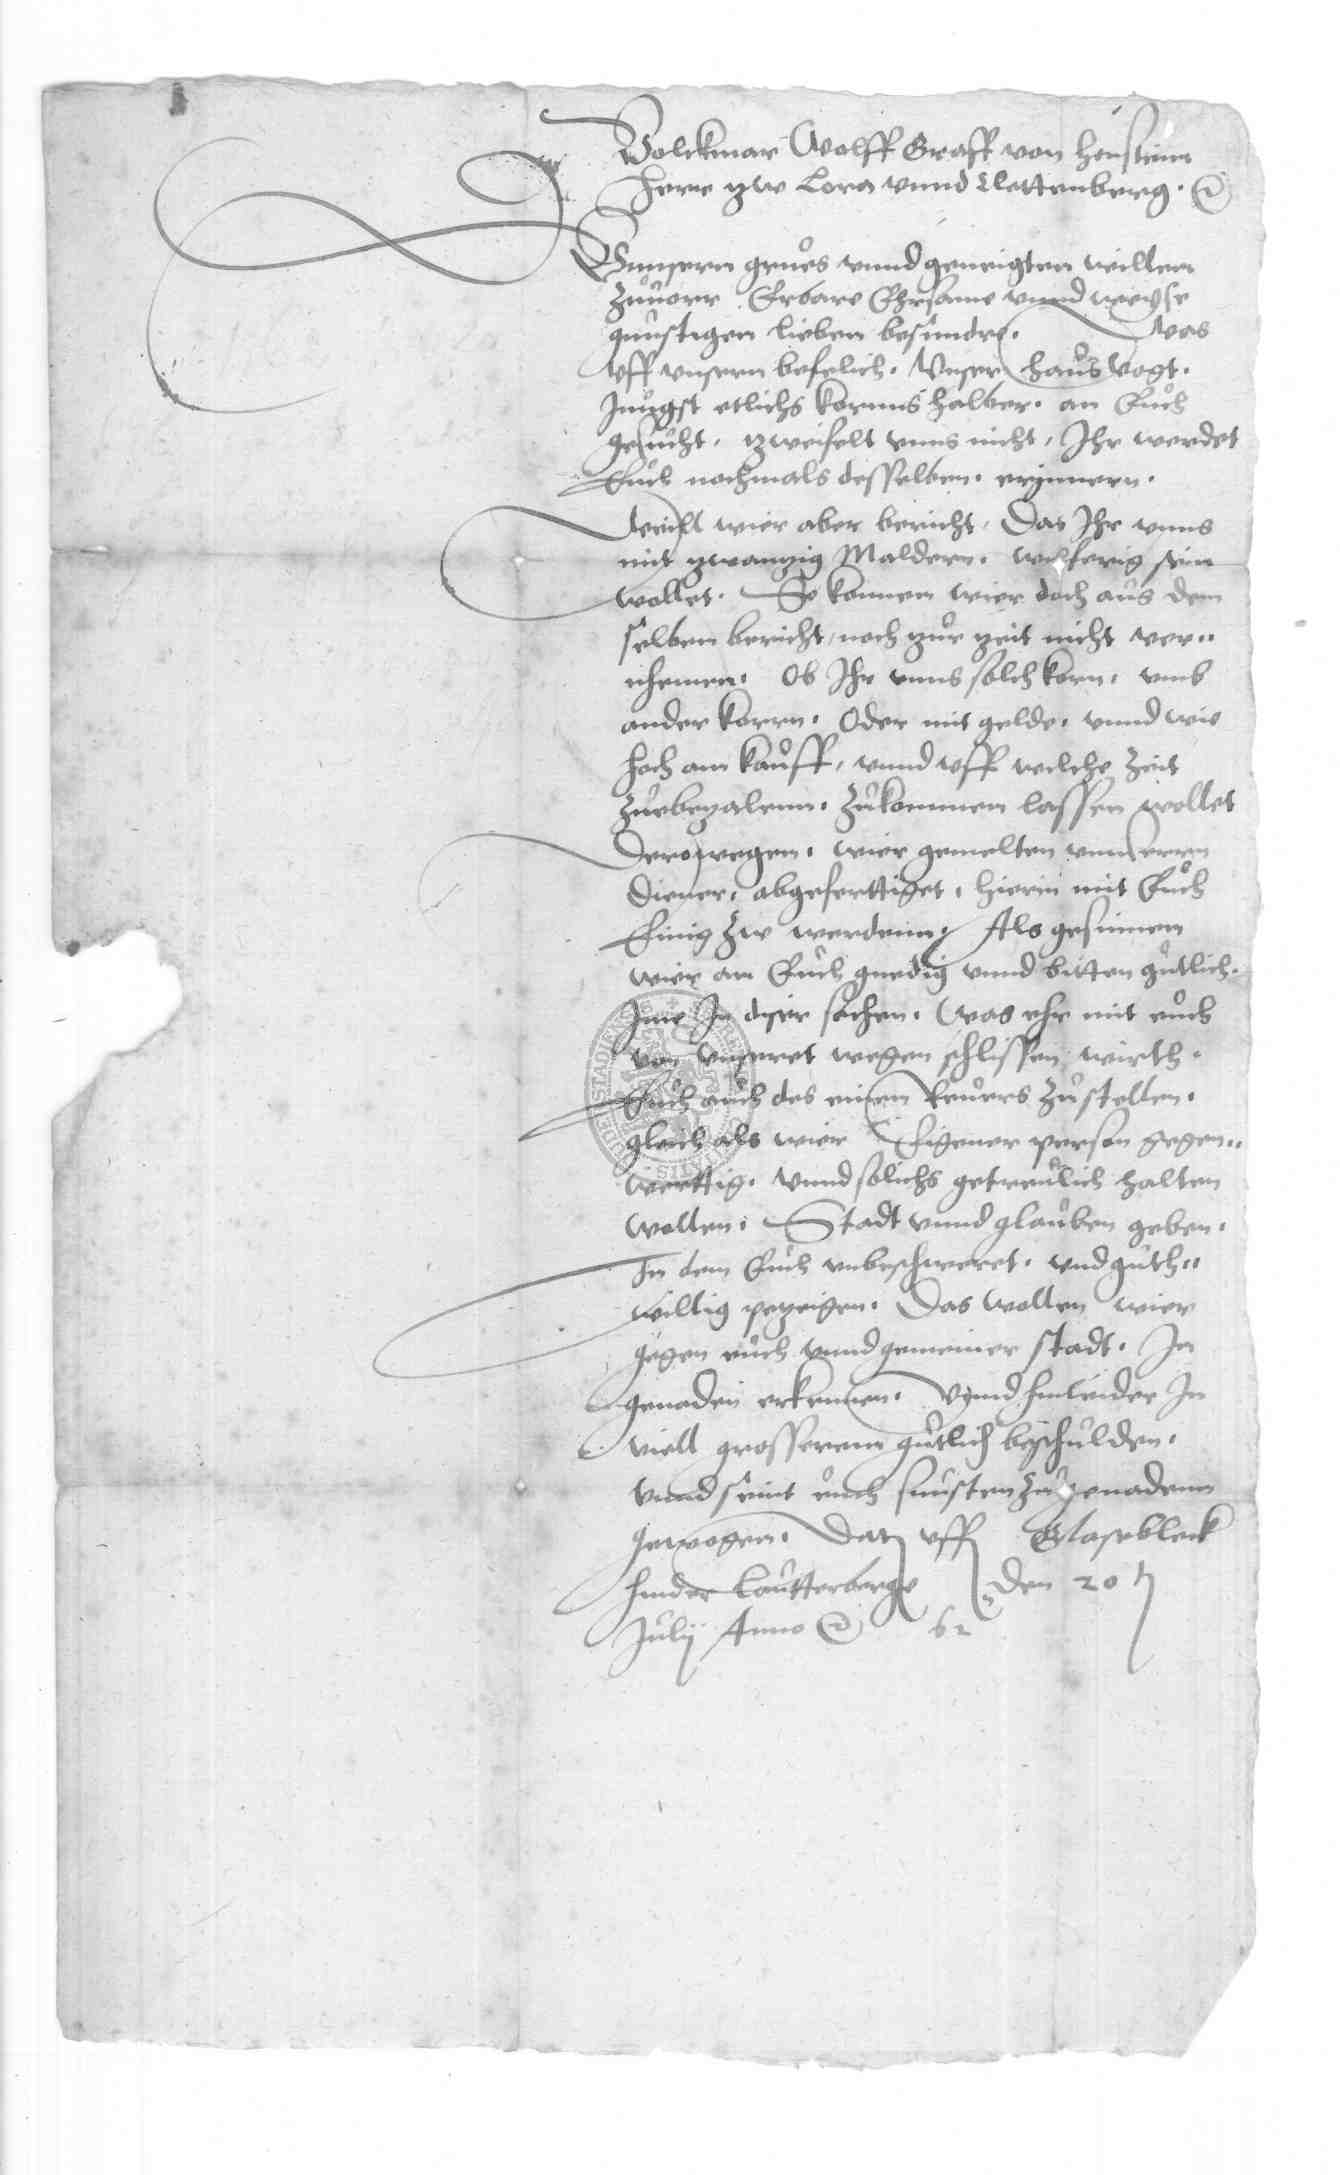 Volckmar Wolff Graff von Honstein
Herre zw Lora vnnd Clettenberg. ꝛc
Vnnsern grues vnnd geneigten willen
zuuorr Erbare Ehrsame vnnd weyse
gunstigen lieben besundre. Was
vff vnsern befelich. Vnser haus Vogt.
Jnngst etlichs kornns halber. an Euch
gesucht. zweifelt vnns nicht, Ihr werdet
Euch nochmals desselben. erynnern.
Weill wier aber bericht, Das Ihr vnns
mit zwanzig Maldern. wilferig sein
wollet. So konnen wier doch aus dem
selben bericht, noch zur zeit nicht ver„
nhemen. Ob Ihr vnns solch korn. vmb
ander korrn. Oder mit gelde. vnnd wie
hoch am kauff, vnnd vff welche zeit
zuebezalenn. zukommen lassen wollet
Derowegen. wier gemelten vnnserrn
diener. abgeferttiget. hierin mit Euch
Einig zw werdenn, Als gesinnen
wier an Euch gnedig vnnd bitten gutlich.
Jme In dyser sachen. Was ehr mit euch
von vnseret wegen schlissen wirth.
Euch auch des einen Reuers zustellen.
gleich als wier Eigener person gegen„
werttig. vnnd solichs getreulich halten
wolten. Stadt vnnd glauben geben.
In dem Euch vnbeschweret. vnd guth„
willig pezeigen. Das wollen wier
gegen euch vnnd gemeiner stadt. In
genaden erkennen. Vnnd hinwider In
viell grosserem gutlich beschulden.
vnnd seint euch sunsten zu genadenn
gewogen. Dat vff Glasebleck
hinder Lautterberge den 20
Julij Anno ꝛc 62